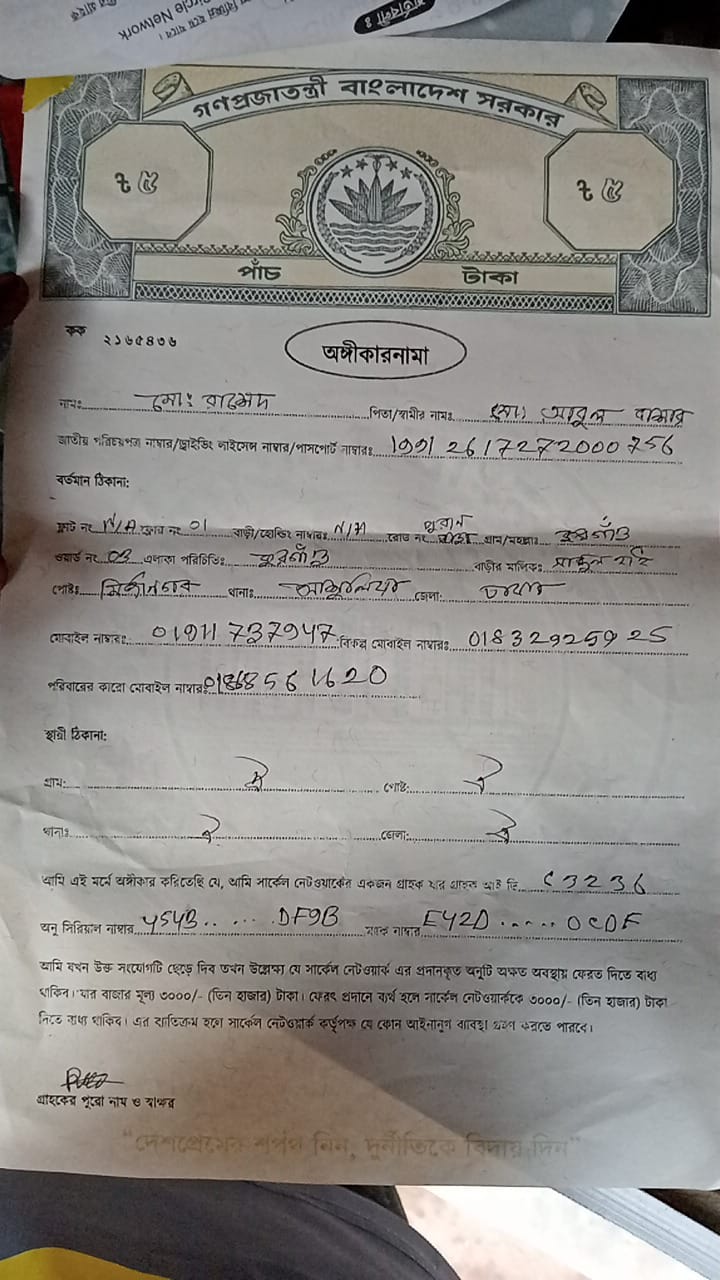 cle Network
গণপ্রজাতন্ত্রী বাংলাদেশ সরকার
৳ ৫ ৳ ৫
পাঁচ টাকা
কক ২১৬৫৪৩৬
অঙ্গীকারনামা
নামঃ মোঃ রাসেদ পিতা/স্বামীর নামঃ মোঃ আবুল বাসার
জাতীয় পরিচয়পত্র নাম্বার/ড্রাইভিং লাইসেন্স নাম্বার/পাসপোর্ট নাম্বারঃ 19912617272000756
বর্তমান ঠিকানা:
ফ্লাট নং N/A ফ্লোর নং 01 বাড়ী/হোল্ডিং নাম্বারঃ N/A রোড নং পুরান গ্রাম/মহল্লাঃ
ওয়ার্ড নং 03 এলাকা পরিচিতিঃ বাড়ীর মালিকঃ
পোষ্টঃ মির্জানগর থানাঃ আশুলিয়া জেলা: ঢাকা
মোবাইল নাম্বারঃ 01911737947 বিকল্প মোবাইল নাম্বারঃ 01832925925
পরিবারের কারো মোবাইল নাম্বারঃ 01868561620
স্থায়ী ঠিকানা:
গ্রাম: ঐ পোষ্ট: ঐ
থানাঃ ঐ জেলা: ঐ
আমি এই মর্মে অঙ্গীকার করিতেছি যে, আমি সার্কেল নেটওয়ার্কের একজন গ্রাহক যার গ্রাহক আই ডি C3236
অনু সিরিয়াল নাম্বার 454B.. .... DF9B ম্যাক নাম্বার E42D ..... 0CDF
আমি যখন উক্ত সংযোগটি ছেড়ে দিব তখন উল্লেক্ষ্য যে সার্কেল নেটওয়ার্ক এর প্রদানকৃত অনুটি অক্ষত অবস্থায় ফেরত দিতে বাধ্য
থাকিব। যার বাজার মূল্য ৩০০০/- (তিন হাজার) টাকা। ফেরৎ প্রদানে ব্যর্থ হলে সার্কেল নেটওয়ার্ককে ৩০০০/- (তিন হাজার) টাকা
দিতে বাধ্য থাকিব। এর ব্যতিক্রম হলে সার্কেল নেটওয়ার্ক কর্তৃপক্ষ যে কোন আইনানুগ ব্যাবস্থা গ্রহণ করতে পারবে।
গ্রাহকের পুরো নাম ও স্বাক্ষর
"দেশপ্রেমের শপথ নিন, দুর্নীতিকে বিদায় দিন"